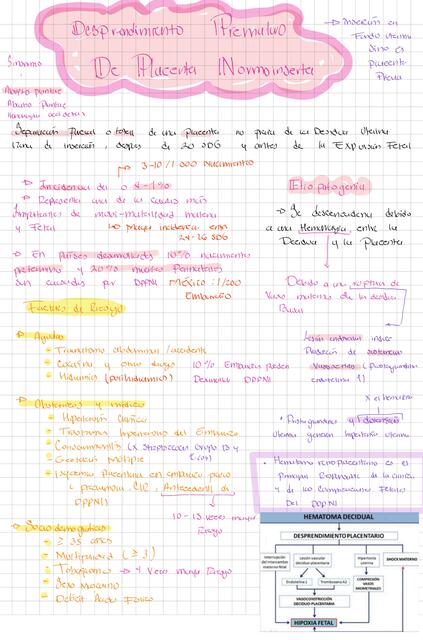 Desprendimiento Prematuro
De Placenta Normoinserta
→ Inserción en
Fondo uterino
Sino es
placenta
Previa
Sinónimo
Abruptio placentae
Separación Parcial o total de una placenta no previa de la Decidua Uterina
de inserción, después de 20 SDG y antes de la Expulsión Fetal
→ 3-10/1000 nacimientos
→ Incidencia de 0.4-1%
→ Representa una de las causas más
importantes de morbi-mortalidad materna
y Fetal
↳ mayor incidencia entre
24-26 SDG
→ En Países desarrollados 10% nacimientos
pretermino y 20% muertes Perinatales
son causados por DPPNI
México: 1/200
Embarazo
Etiopatogenia
→ Se desencadena debido
a una Hemorragia entre la
Decidua y la Placenta
Debido a una ruptura de
Vaso materno de la decidua
Basal
Lesión endotelial induce
Producción de sustancias
Vasoactivas (Prostaglandinas
endotelina 1)
• Prostaglandinas y
uterina generan hipertonía uterina
• Hematoma retroplacentario es el
principal Responsable de la clínica
y de las Complicaciones Fetales
Del DPPNI
Factores de Riesgo
→ Agudos
Traumatismo abdominal/accidente
Cocaína y otras drogas
10% Embarazos Pueden
Desarrollar DPPNI
Hidramnios (polihidramnios)
→ Obstétricos y médico
Hipertensión Crónica
Trastornos Hipertensivos del Embarazo
Corioamnionitis (x Streptococcus Grupo B y
E. coli)
Gestación múltiple
Isquemia placentaria en embarazo previo
(preeclampsia, CIR, Antecedente de
DPPNI)
10-15 veces mayor
Riesgo
→ Sociodemográficos
≥ 35 años
Multiparidad (≥ 3)
Tabaquismo → 4 veces mayor Riesgo
Sexo Masculino
Déficit Acido Fólico
HEMATOMA DECIDUAL
DESPRENDIMIENTO PLACENTARIO
Interrupción del
intercambio
materno fetal
Lesión vascular
decidua-placentaria
Hipertonía
uterina
SHOCK MATERNO
Endotelina 1
Tromboxano A2
COMPRESIÓN
VASOS
MIOMETRIALES
VASOCONSTRICCIÓN
DECIDUO PLACENTARIA
HIPOXIA FETAL